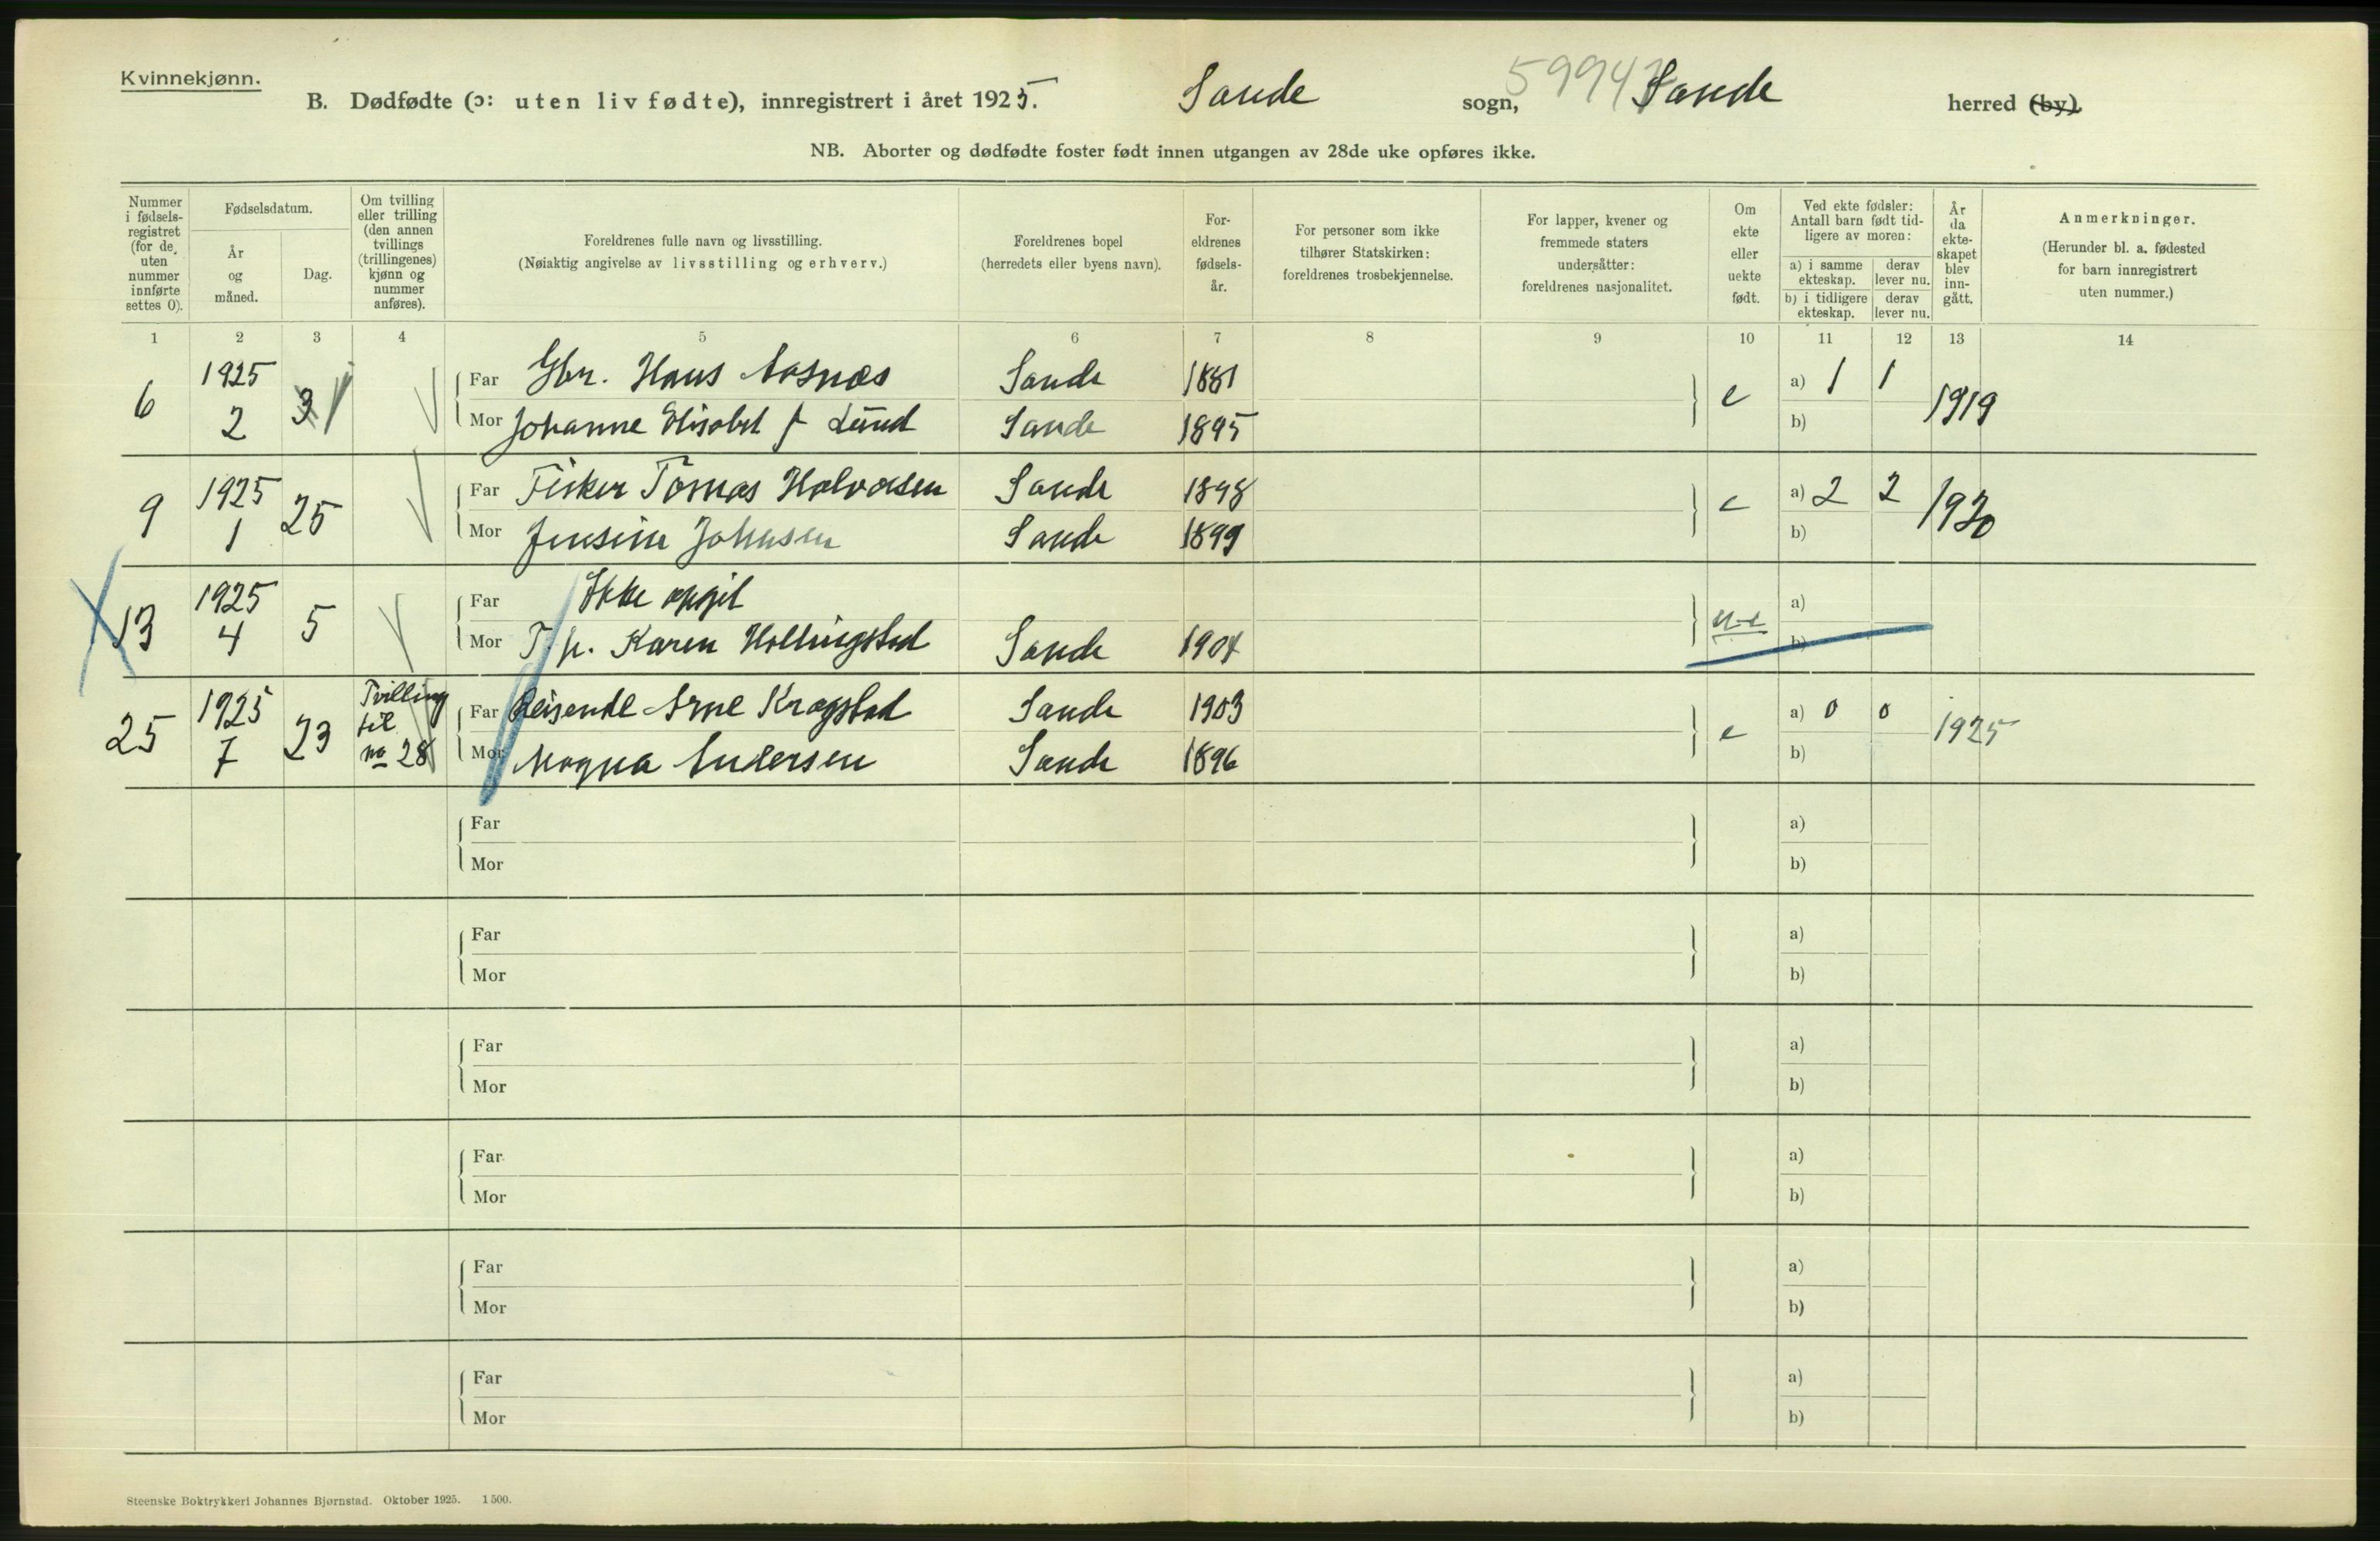 Kvinnekjønn.
B. Dødfødte (ɔ: uten liv fødte), innregistrert i året 1925. Sande sogn, 5994 Sande herred (by).
NB. Aborter og dødfødte foster født innen utgangen av 28de uke opføres ikke.
Nummer i fødselsregistret (for de uten nummer innførte settes 0).
Fødselsdatum.
År og måned.
Dag.
Om tvilling eller trilling (den annen tvillings (trillingenes) kjønn og nummer anføres).
Foreldrenes fulle navn og livsstilling.
(Nøiaktig angivelse av livsstilling og erhverv.)
Foreldrenes bopel
(herredets eller byens navn).
Foreldrenes fødselsår.
For personer som ikke tilhører Statskirken: foreldrenes trosbekjennelse.
For lapper, kvener og fremmede staters undersåtter: foreldrenes nasjonalitet.
Om ekte eller uekte født.
Ved ekte fødsler: Antall barn født tidligere av moren:
a) i samme ekteskap. derav lever nu.
b) i tidligere ekteskap. derav lever nu.
År da ekteskapet blev inngått.
Anmerkninger.
(Herunder bl. a. fødested for barn innregistrert uten nummer.)
1 2 3 4 5 6 7 8 9 10 11 12 13 14
6 1925 2 3 Far Gbr. Hans Aasnæs Sande 1881 e a) 1 1 1919
Mor Johanne Elisabet f Lund Sande 1895 b)
9 1925 1 25 Far Fisker Tomas Halvorsen Sande 1898 e a) 2 2 1920
Mor Jensine Johnsen Sande 1899 b)
13 1925 4 5 Far Ikke opgit u-e a)
Mor T.p. Karen Hollingstad Sande b)
25 1925 7 23 Tvilling til no 28 Far Reisende Arne Kragstad Sande 1903 e a) 0 0 1925
Mor Magna Andersen Sande 1896 b)
Far a)
Mor b)
Far a)
Mor b)
Far a)
Mor b)
Far a)
Mor b)
Far a)
Mor b)
Far a)
Mor b)
Steenske Boktrykkeri Johannes Bjørnstad. Oktober 1925. 1500.